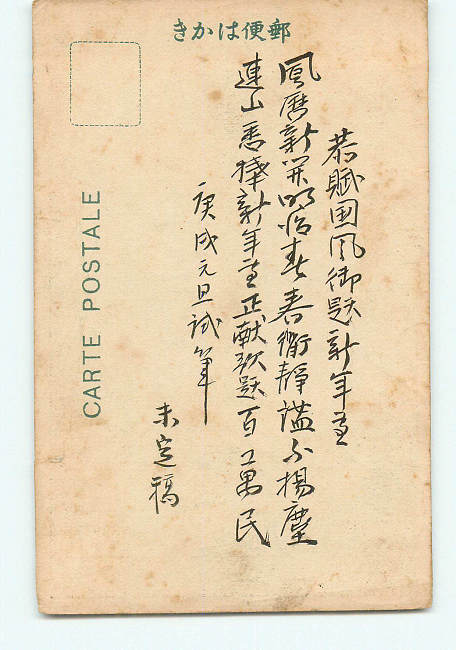 郵便はかき
CARTE POSTALE
恭賦国風御題新年雪
鳳暦新開明治春春衢靜謐不揚塵
連山悉新年雪正献歌題百萬民
庚戌元旦試筆
未定稿